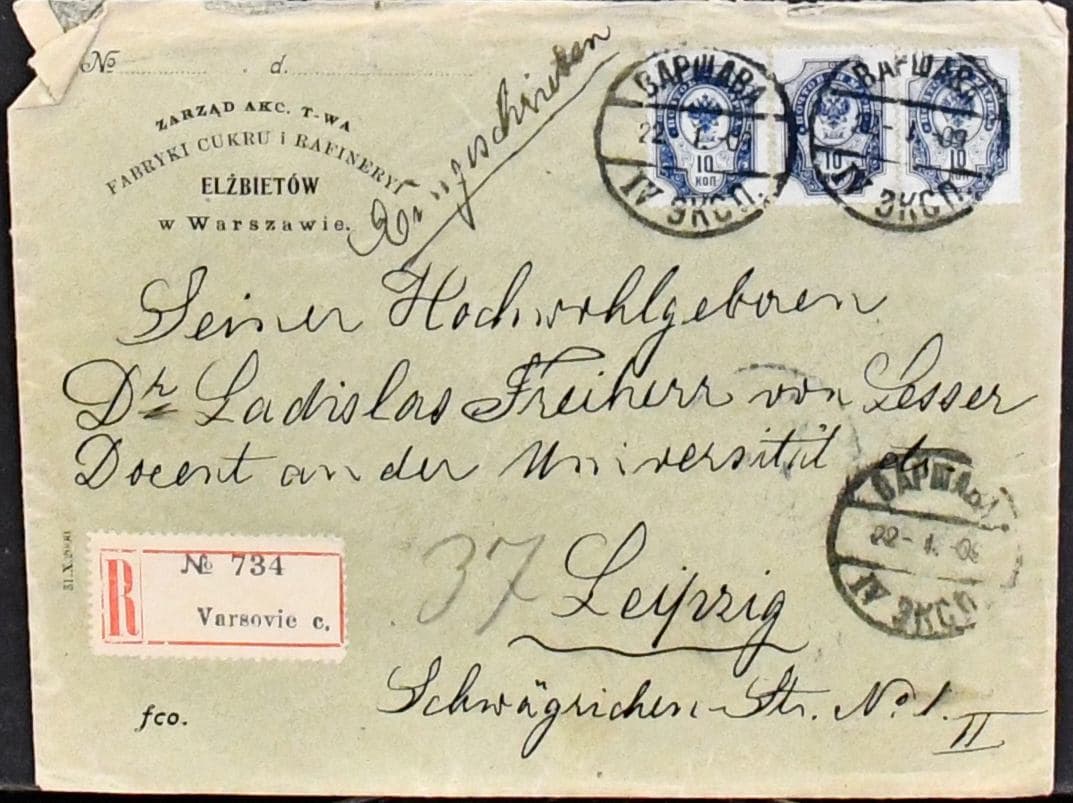 № . d.
ZARZĄD AKC. T-WA
FABRYKI CUKRU i RAFINERYI
ELŻBIETÓW
w Warszawie.
Eingeschrieben
ВАРШАВА
22-1.-09
IV ЭКСП.
10
КОП
10
10
ВАРШАВА
-1.-09
IV ЭКСП.
Seiner Hochwohlgeboren
Dr Ladislas Freiherr von Lesser
Docent an der Universität
ВАРШАВА
22-1.-09
IV ЭКСП
31.X.
R
№ 734
Varsovie c.
37
Leipzig
fco.
Schwägrichen-Str. No 1.
II